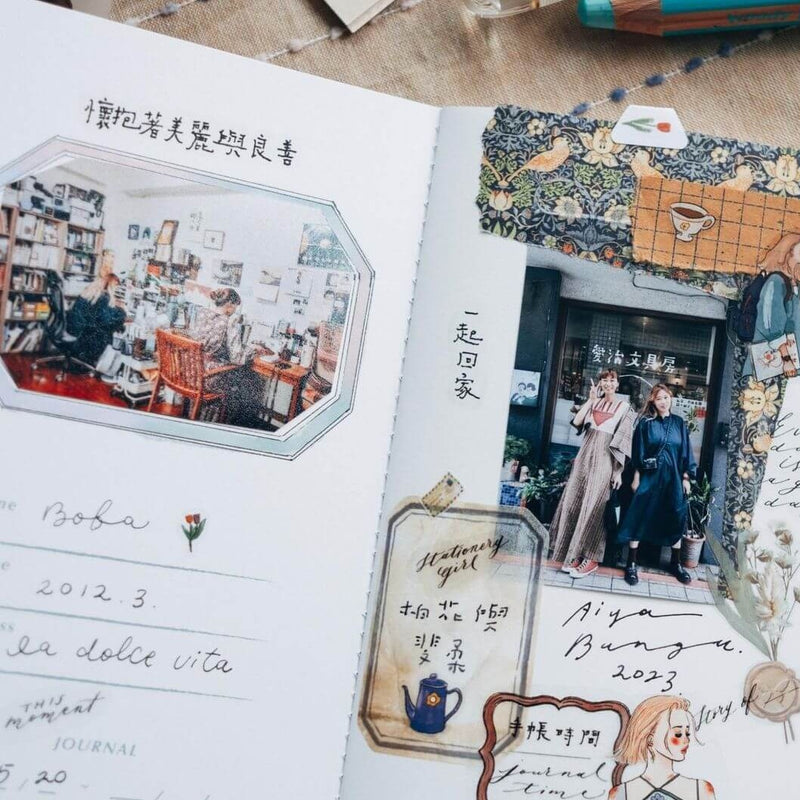 懷抱著美麗與良善
Boba
2012.3.
la dolce vita
THIS
moment
JOURNAL
20
一起回家
愛治文具房
Stationery
girl
花與
柔
Aiya
Bungu.
2023.
Story of
手帳時間
journal
time